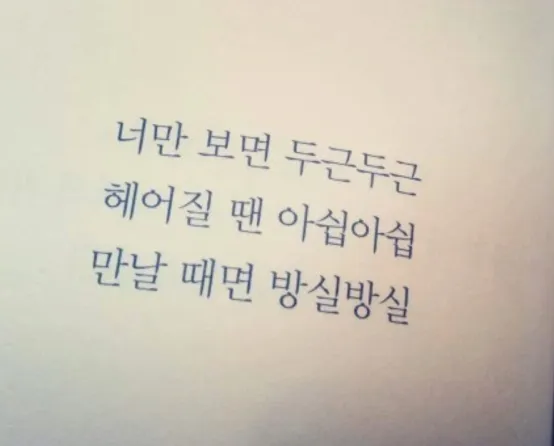 너만 보면 두근두근
헤어질 땐 아쉽아쉽
만날 때면 방실방실